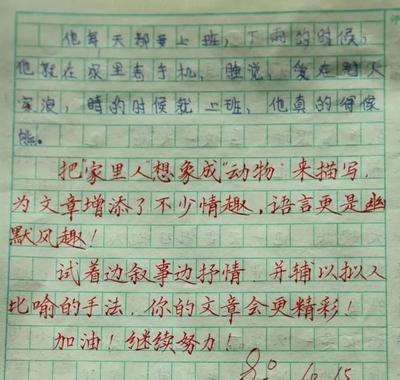 他每天都要上班，下雨的时候，
他就在家里看手机，睡觉，
深没，晴的时候就上班，他真的得像
熊。
把"家里人"想象成"动物"来描写，
为文章增添了不少情趣，语言更是幽
默风趣！
试着边叙事边抒情，并辅以拟人
比喻的手法，你的文章会更精彩！
加油！继续努力！
10.15